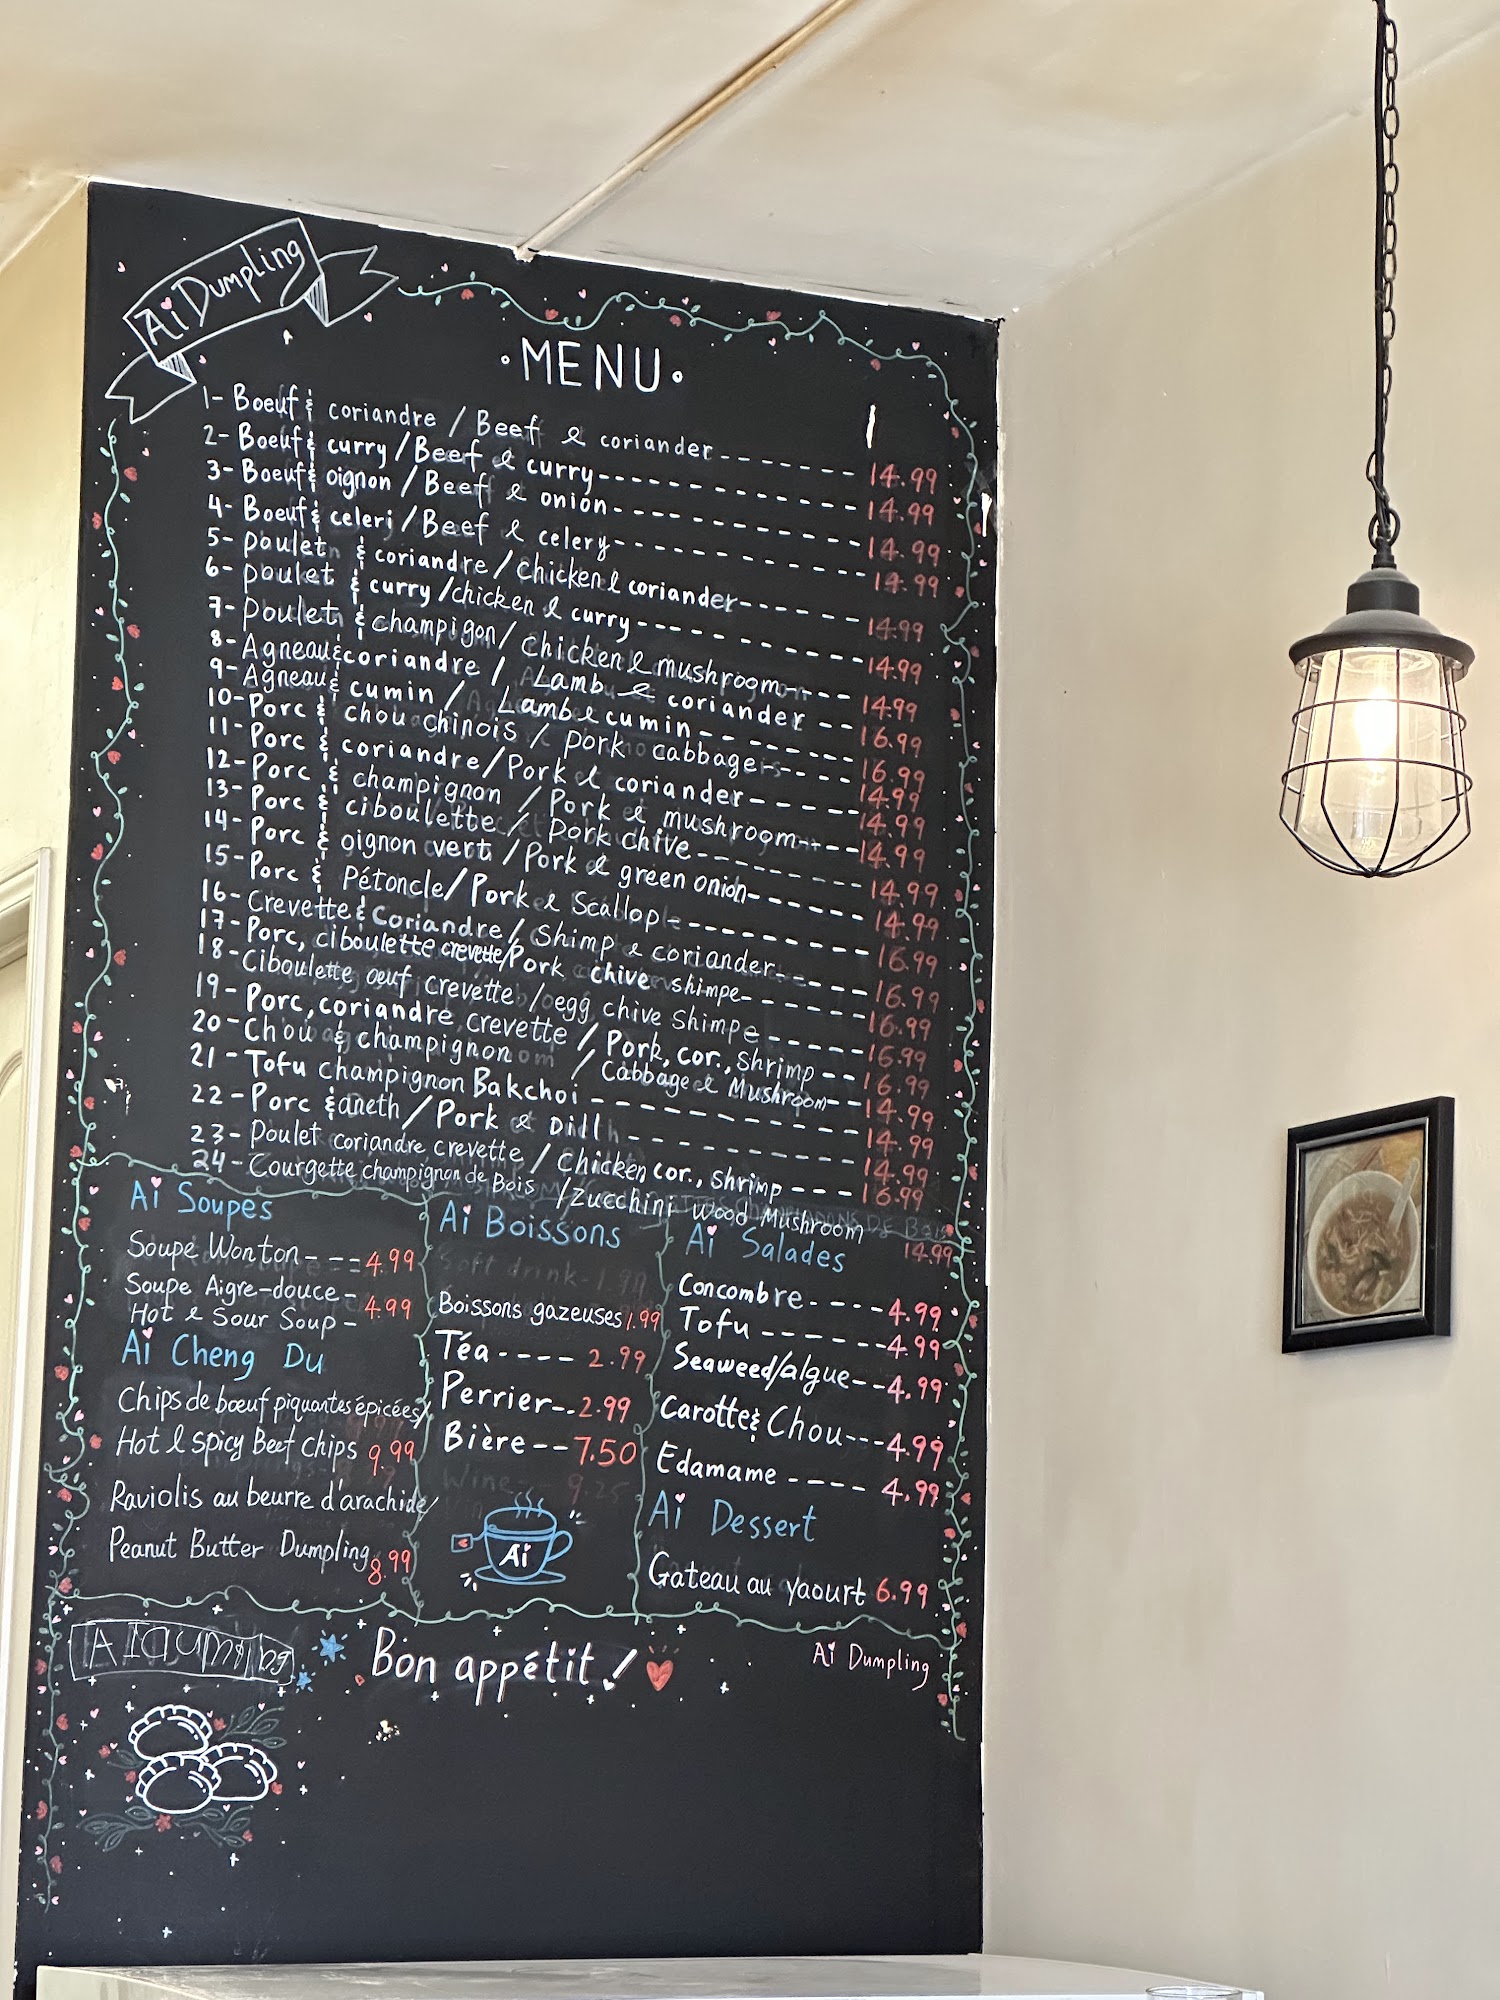 Ai Dumpling
·MENU·
1- Boeuf & coriandre / Beef & coriander ------- 14.99
2- Boeuf & curry / Beef & curry ------------ 14.99
3- Boeuf & oignon / Beef & onion ------------ 14.99
4- Boeuf & celeri / Beef & celery ------------ 14.99
5- poulet & coriandre / chicken & coriander ------ 14.99
6- poulet & curry / chicken & curry ---------- 14.99
7- Poulet & champigon / chicken & mushroom ---- 14.99
8- Agneau & coriandre / Lamb & coriander -- 16.99
9- Agneau & cumin / Lamb & cumin ------- 16.99
10- Porc & chou chinois / pork cabbage ---- 14.99
11- Porc & coriandre / Pork & coriander ---- 14.99
12- Porc & champignon / Pork & mushroom ---- 14.99
13- Porc & ciboulette / pork chive ------- 14.99
14- Porc & oignon vert / Pork & green onion ----- 14.99
15- Porc & Pétoncle / Pork & Scallop --------- 16.99
16- Crevette & Coriandre / Shimp & coriander ----- 16.99
17- Porc, ciboulette crevette / Pork chive shimpe ------ 16.99
18- Ciboulette œuf crevette / egg chive shimpe ----- 16.99
19- Porc, coriandre crevette / Pork, cor., shrimp -- 16.99
20- Chou & champignon / Cabbage & Mushroom -- 14.99
21- Tofu champignon Bakchoi --------- 14.99
22- Porc & aneth / Pork & Dill -------- 14.99
23- Poulet coriandre crevette / chicken cor., shrimp --- 16.99
24- Courgette champignon de Bois / Zucchini wood Mushroom 14.99
Ai Soupes
Soupe Wonton ---- 4.99
Soupe Aigre-douce -
Hot & Sour Soup - 4.99
Ai Cheng Du
Chips de bœuf piquantes épicées/
Hot & Spicy Beef chips 9.99
Raviolis au beurre d'arachide/
Peanut Butter Dumpling 8.99
Ai Boissons
Boissons gazeuses 1.99
Téa ---- 2.99
Perrier --- 2.99
Bière -- 7.50
Ai
Ai Salades
Concombre ---- 4.99
Tofu ------ 4.99
Seaweed/algue -- 4.99
Carotte & Chou --- 4.99
Edamame ---- 4.99
Ai Dessert
Gateau au yaourt 6.99
Bon appétit !
Ai Dumpling